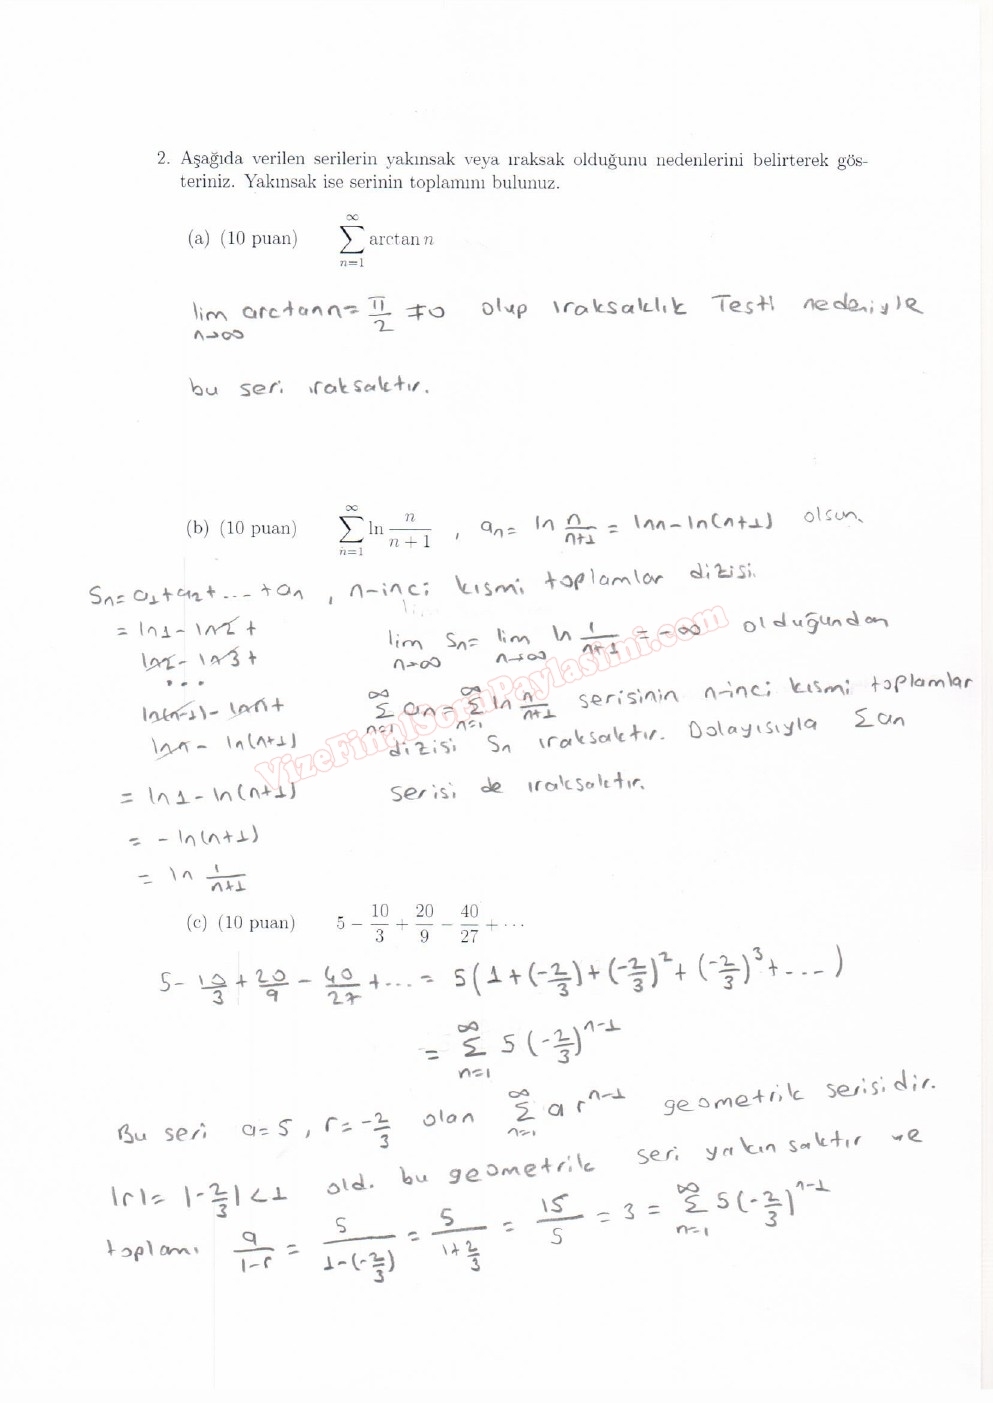 2. Aşağıda verilen serilerin yakınsak veya ıraksak olduğunu nedenlerini belirterek gös-
teriniz. Yakınsak ise serinin toplamını bulunuz.
(a) (10 puan) ∑_{n=1}^{∞} arctan n
lim_{n→∞} arctan n = π/2 ≠ 0 olup ıraksaklık Testi nedeniyle
bu seri ıraksaktır.
(b) (10 puan) ∑_{n=1}^{∞} ln n/(n+1) , a_n = ln n/(n+1) = ln n - ln(n+1) olsun.
S_n = a_1 + a_2 + ... + a_n , n-inci kısmi toplamlar dizisi.
= ln 1 - ln 2 +
ln 2 - ln 3 +
...
ln(n-1) - ln n +
ln n - ln(n+1)
= ln 1 - ln(n+1)
= - ln(n+1)
= ln 1/(n+1)
lim_{n→∞} S_n = lim_{n→∞} ln 1/(n+1) = -∞ olduğundan
∑_{n=1}^{∞} a_n = ∑_{n=1}^{∞} ln n/(n+1) serisinin n-inci kısmi toplamlar
dizisi S_n ıraksaktır. Dolayısıyla ∑a_n
serisi de ıraksaktır.
VizeFinalSoruPaylasimi.com
(c) (10 puan) 5 - 10/3 + 20/9 - 40/27 + ···
5 - 10/3 + 20/9 - 40/27 + ... = 5(1 + (-2/3) + (-2/3)^2 + (-2/3)^3 + ...)
= ∑_{n=1}^{∞} 5(-2/3)^{n-1}
Bu seri a = 5 , r = -2/3 olan ∑_{n=1}^{∞} a r^{n-1} geometrik serisidir.
|r| = |-2/3| < 1 old. bu geometrik seri yakınsaktır ve
toplamı a/(1-r) = 5/(1-(-2/3)) = 5/(1+2/3) = 15/5 = 3 = ∑_{n=1}^{∞} 5(-2/3)^{n-1}